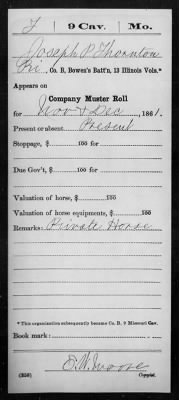 T | 9 Cav. | Mo.
Joseph P. Thornton
Pri, Co. B, Bowen's Batt'n, 13 Illinois Vols.*
Appears on
Company Muster Roll
for Nov & Dec, 1861.
Present or absent Present
Stoppage, $ 100 for
Due Gov't, $ 100 for
Valuation of horse, $ 100
Valuation of horse equipments, $ 100
Remarks: Private Horse
* This organization subsequently became Co. B, 9 Missouri Cav.
Book mark:
E. W. Moore
(358) Copyist.